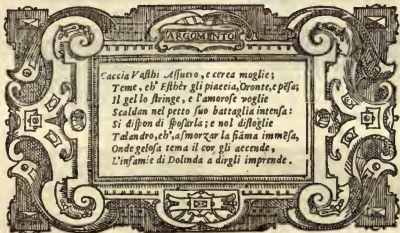 ARGOMENTO
Caccia Vasthi Assuero, e cerca moglie;
Teme, ch' Esthèr gli piaccia, Oronte, e pēsa;
Il gel lo stringe, e l'amorose voglie
Scaldan nel petto suo battaglia intensa:
Si dispon di sposarla; e nol distoglie
Talandro, ch', a smorzar la fiāma immēsa,
Onde gelosa tema il cor gli accende,
L'infamie di Dolinda a dirgli imprende.